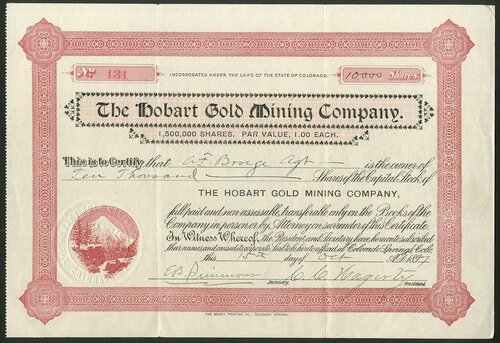 No 131
INCORPORATED UNDER THE LAWS OF THE STATE OF COLORADO.
10000 Shares
The Hobart Gold Mining Company.
1,500,000 SHARES. PAR VALUE, 1.00 EACH.
This is to Certify that A. F. Agt is the owner of
Ten Thousand Shares of the Capital Stock of
THE HOBART GOLD MINING COMPANY,
full paid and non assessable, transferable only on the Books of the
Company in person or by Attorney on surrender of this Certificate.
In Witness Whereof, the President and Secretary have hereunto subscribed
their names and caused the corporate Seal to be hereto affixed at Colorado Springs, Colo.
this 15th day of Oct A.D. 1897
E.B. Simmons C. C. Hagerty
Secretary President
THE GOWDY PRINTING CO., COLORADO SPRINGS.